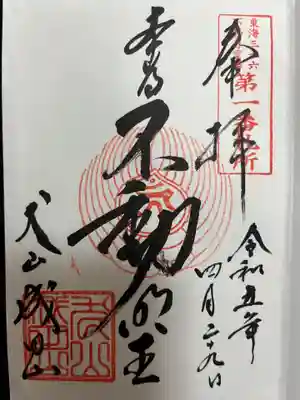 奉拝
東海三十六
第一番札所
令和五年
四月二十九日
本尊
不動明王
犬山成田山